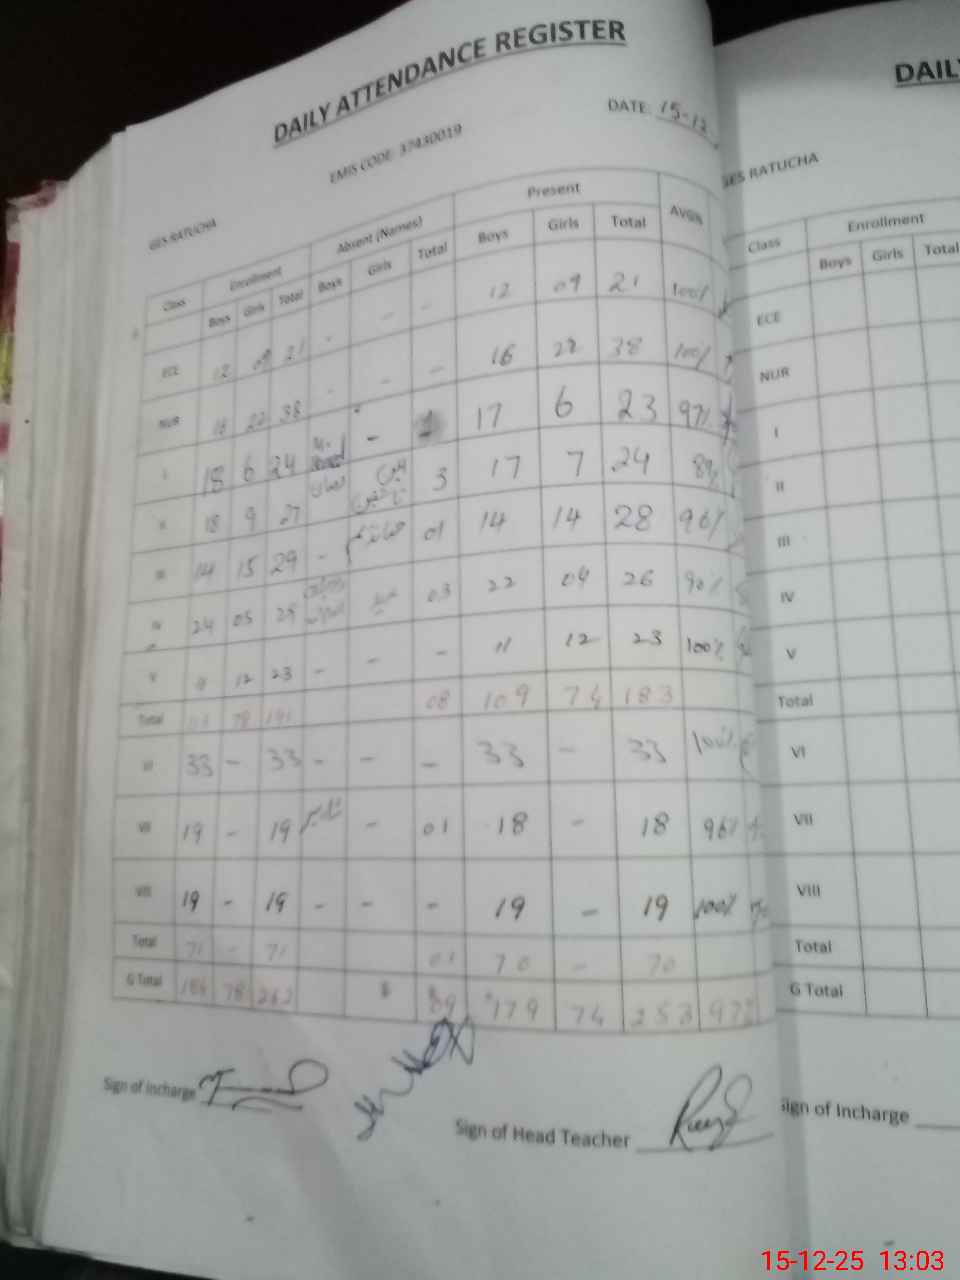 DAILY ATTENDANCE REGISTER
EMIS CODE: 37430019
DATE: 15-12
GES RATUCHA
Class Enrollment Absent (Names) Present Avg%
Boys Girls Total Boys Girls Total Boys Girls Total
ECE 12 09 21 - - - 12 09 21 100%
NUR 16 22 38 - - - 16 22 38 100%
I 18 6 24 - 1 17 6 23 97%
II 18 9 27 3 17 7 24 89%
III 14 15 29 - 01 14 14 28 96%
IV 24 05 29 03 22 04 26 90%
V 11 12 23 - - - 11 12 23 100%
Total 78 191 08 109 74 183
VI 33 - 33 - - - 33 - 33 100%
VII 19 - 19 - 01 18 - 18 96%
VIII 19 - 19 - - - 19 - 19 100%
Total 71 - 71 01 70 - 70
G Total 184 78 262 09 179 74 253 97%
Sign of Incharge
Sign of Head Teacher
DAIL
GES RATUCHA
Class Enrollment
Boys Girls Total
ECE
NUR
I
II
III
IV
V
Total
VI
VII
VIII
Total
G Total
Sign of Incharge
15-12-25 13:03